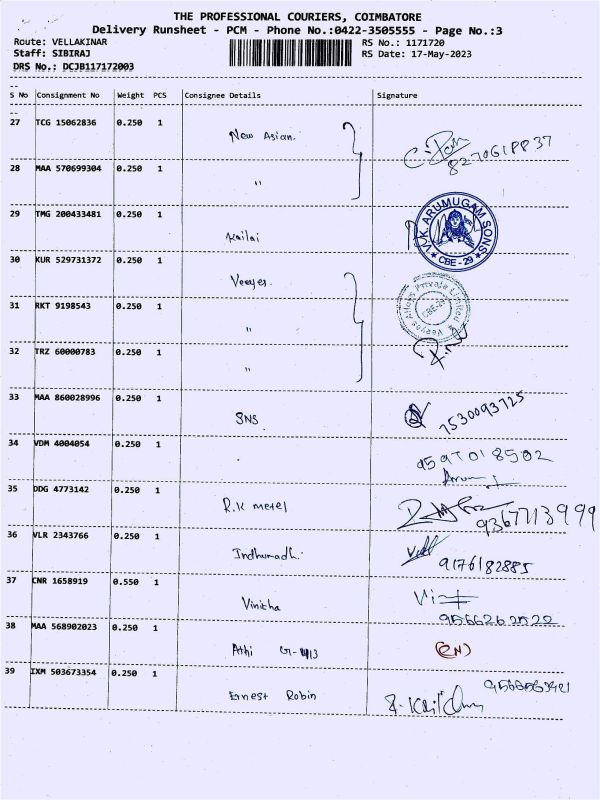 THE PROFESSIONAL COURIERS, COIMBATORE
Delivery Runsheet - PCM - Phone No.:0422-3505555 - Page No.:3
Route: VELLAKINAR RS No.: 1171720
Staff: SIBIRAJ RS Date: 17-May-2023
DRS No.: DCJB117172003
--
S No Consignment No Weight PCS Consignee Details Signature
--
27 TCG 15062836 0.250 1 New Asian. 8270618837
28 MAA 570699304 0.250 1 "
29 TMG 200433481 0.250 1 Kailai V.O.K. ARUMUGAM SONS CBE-29
30 KUR 529731372 0.250 1 Veeyes. Veeyes Alloys Private Limited CBE-29
31 RKT 9198543 0.250 1 "
32 TRZ 60000783 0.250 1 "
33 MAA 860028996 0.250 1 SNS 7530093725
34 VDM 4004054 0.250 1 9597018502
35 DDG 4773142 0.250 1 R.K metel 9367713999
36 VLR 2343766 0.250 1 Indhumadh. 9176182885
37 CNR 1658919 0.550 1 Vinitha 9566262522
38 MAA 568902023 0.250 1 Athi
39 IXM 503673354 0.250 1 Ernest Robin